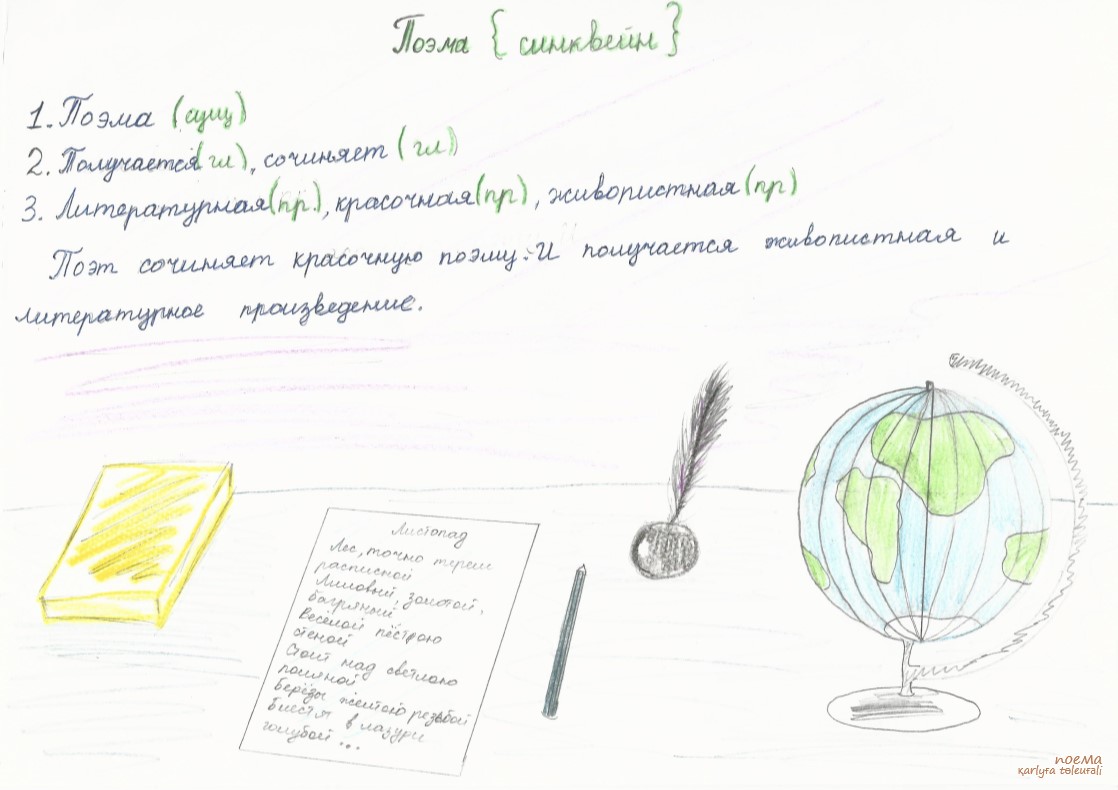 Поэма { синквейн }
1. Поэма (сущ)
2. Получается (гл), сочиняет (гл)
3. Литературная (пр.), красочная (пр), живопистная (пр)
Поэт сочиняет красочную поэму. И получается живопистная и
литературное произведение.
Листопад
Лес, точно терем
расписной
Лиловый, золотой,
багряный
Весёлой пёстрою
стеной
Стоит над светлою
поляной
Берёзы желтою резьбой
Блестят в лазури
голубой ...
поема
qarlyғa tөleuғali